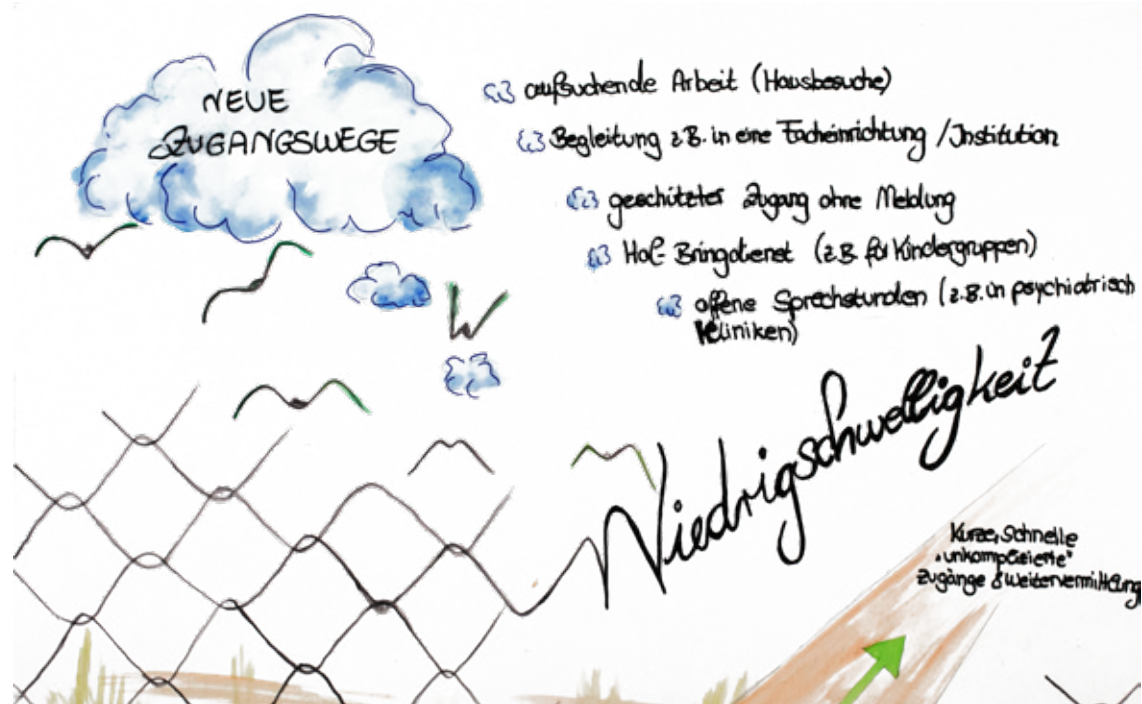 NEUE
ZUGANGSWEGE
aufsuchende Arbeit (Hausbesuche)
Begleitung z.B. in eine Facheinrichtung / Institution
geschützter Zugang ohne Meldung
Hol- Bringdienst (z.B. für Kindergruppen)
offene Sprechstunden (z.B. in psychiatrisch
Kliniken)
Niedrigschwelligkeit
Kurze, schnelle
"unkomplizierte"
Zugänge & Weitervermittlung